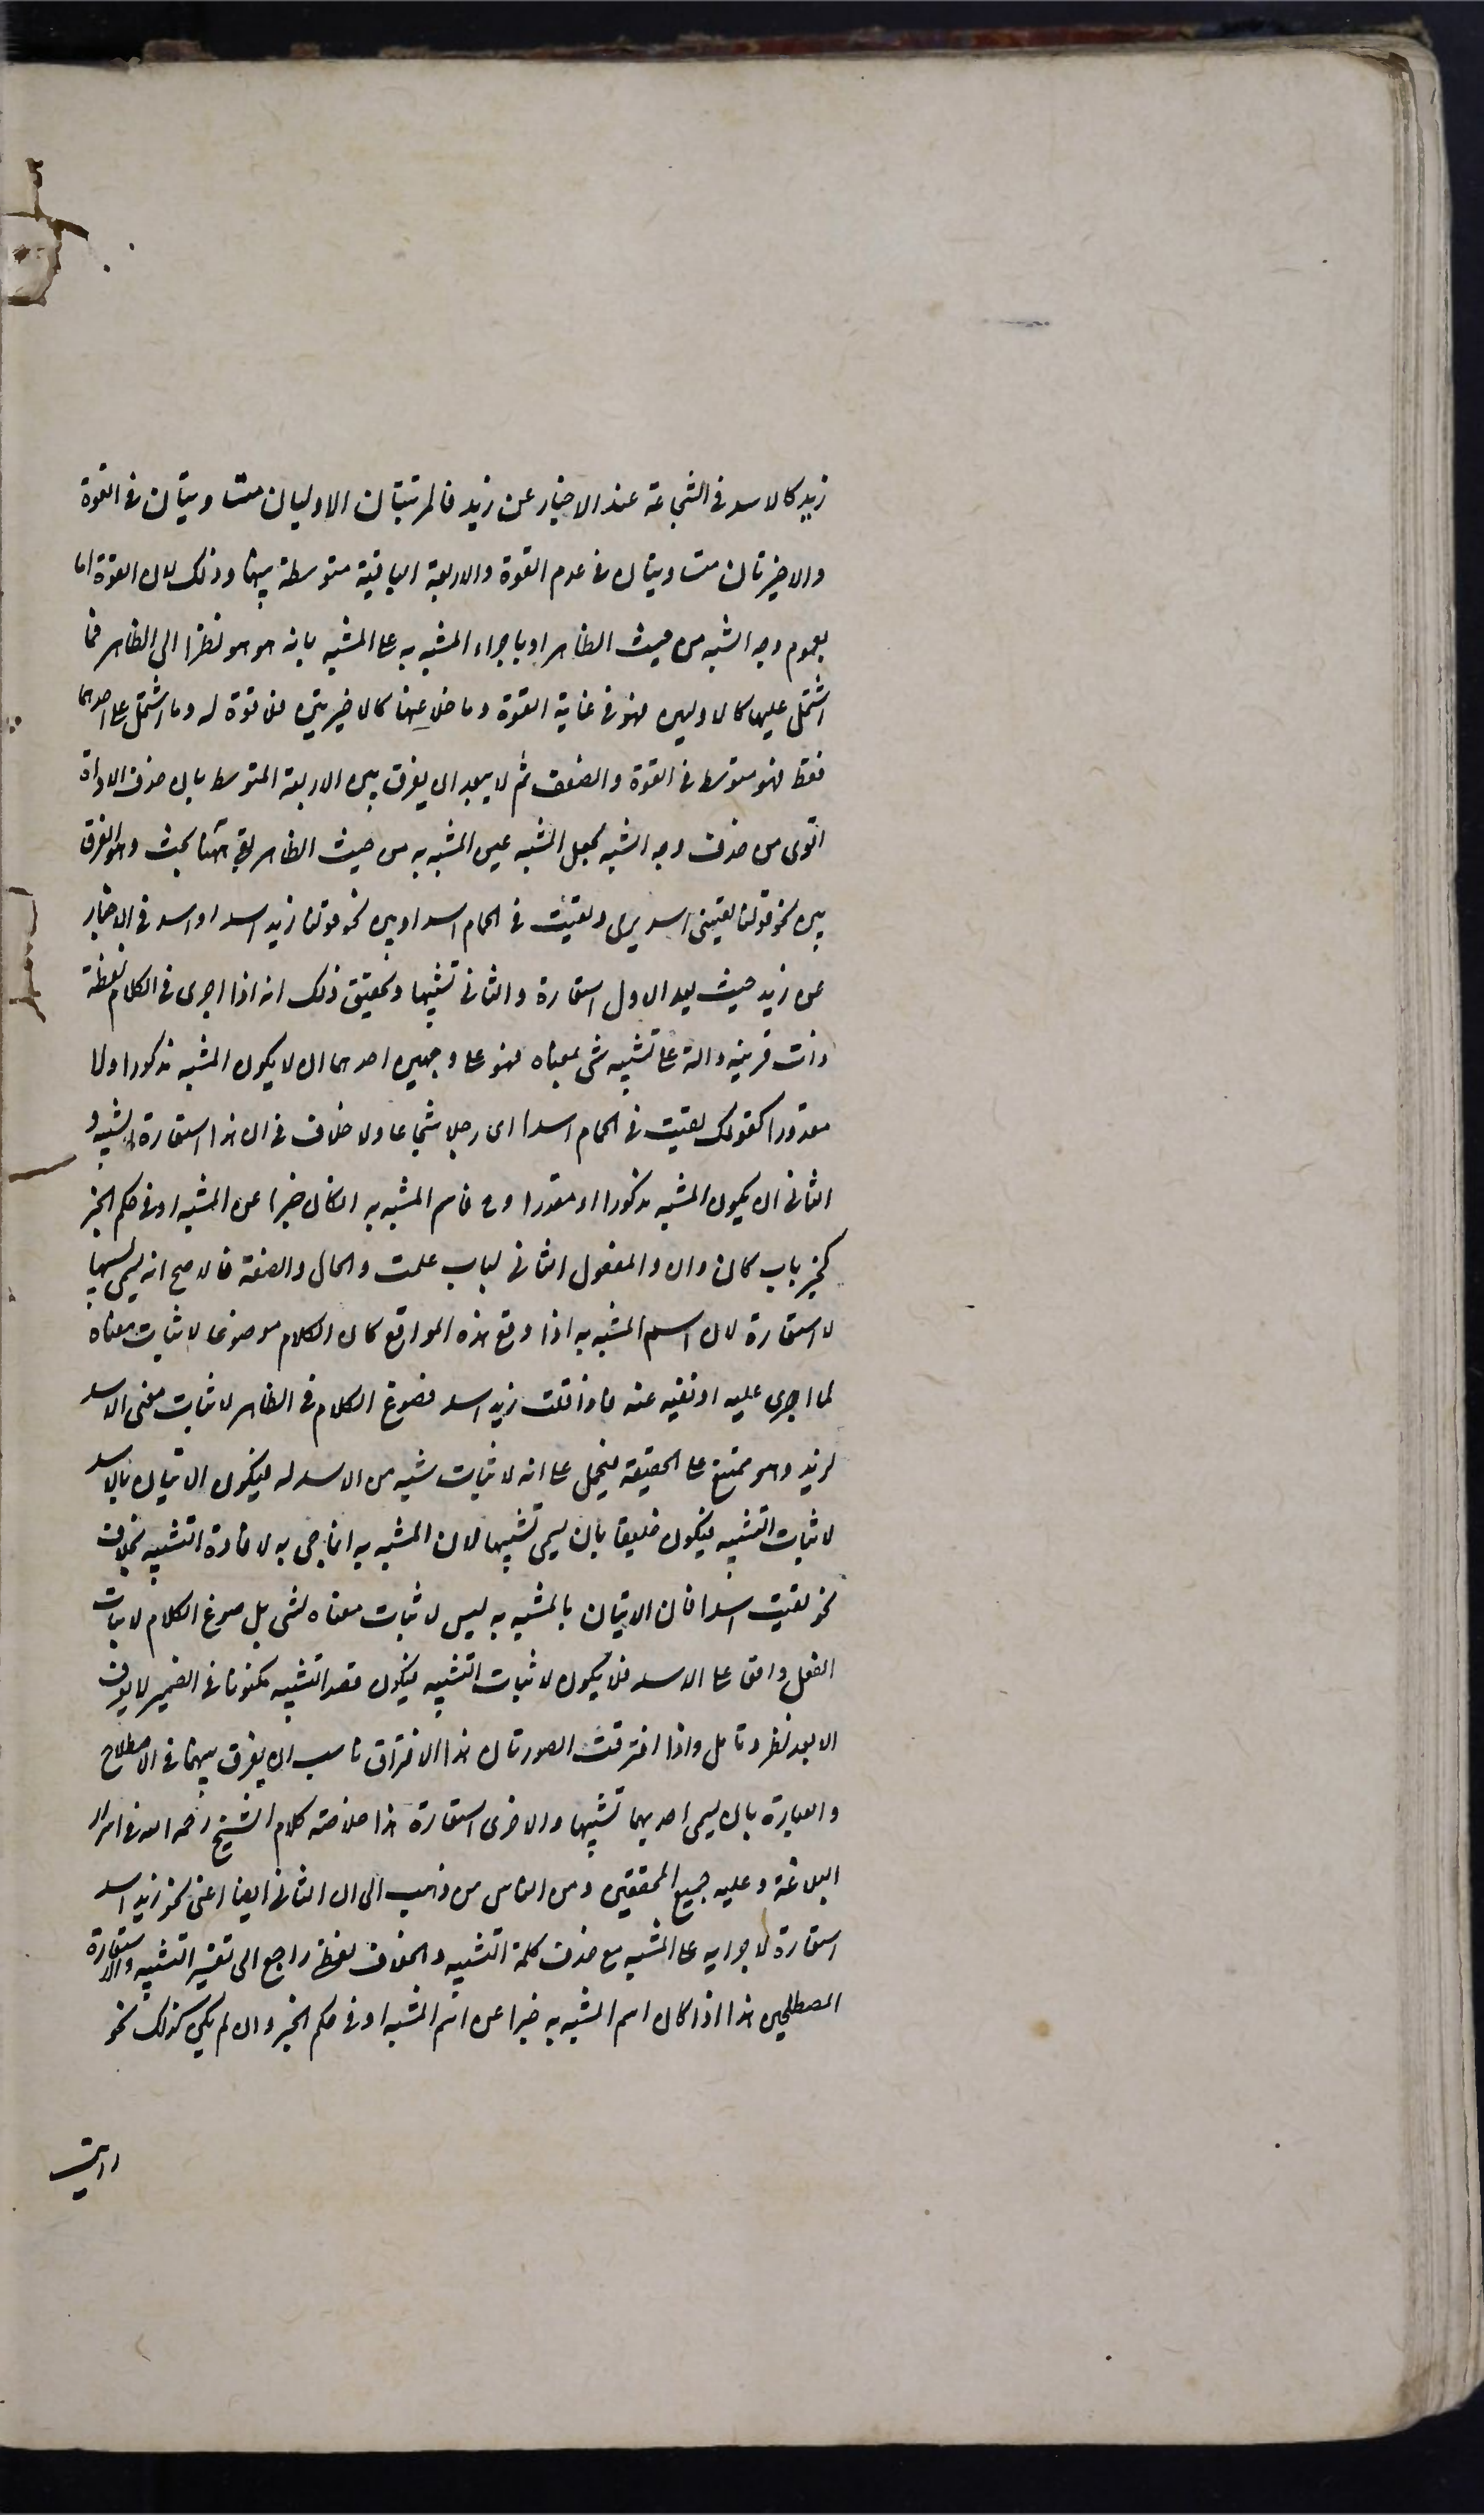 زيد كالاسد فى الشجاعة عند الاخبار عن زيد فالمرتبتان الاوليان متساويتان فى القوة
والاخيرتان متساويتان فى عدم القوة والاربعة الباقية متوسطة بينهما وذلك لان القوة اما
بعموم وجه الشبه من حيث الظاهر او باجراء المشبه به على المشبه بانه هو هو نظرا الى الظاهر فما
اشتمل عليهما كالاوليين فهو فى غاية القوة وما خلا عنهما كالاخيرتين فلا قوة له وما اشتمل على احدهما
فقط فهو متوسط فى القوة والضعف ثم لا يبعد ان يفرق بين الاربعة المتوسط بان حذف الاداة
اقوى من حذف وجه الشبه لجعل المشبه عين المشبه به من حيث الظاهر بقى ههنا بحث وهو الفرق
بين نحو قولنا لقينى اسد يرمى ولقيت فى الحمام اسدا وبين نحو قولنا زيد اسد او اسد فى الاخبار
عن زيد حيث يعد الاول استعارة والثانى تشبيها وتحقيق ذلك انه اذا اجرى فى الكلام لفظة
ذات قرينة دالة على تشبيه شئ بمعناه فهو على وجهين احدهما ان لا يكون المشبه مذكورا ولا
مقدرا كقولك لقيت فى الحمام اسدا اى رجلا شجاعا ولا خلاف فى ان هذا استعارة لا تشبيه و
الثانى ان يكون المشبه مذكورا او مقدرا وح فاسم المشبه به ان كان خبرا عن المشبه او فى حكم الخبر
كخبر باب كان وان والمفعول الثانى لباب علمت والحال والصفة فالاصح انه يسمى تشبيها
لا استعارة لان اسم المشبه به اذا وقع هذه المواقع كان الكلام موضوعا لاثبات معناه
لما اجرى عليه او نفيه عنه فاذا قلت زيد اسد فصوغ الكلام فى الظاهر لاثبات معنى الاسد
لزيد وهو ممتنع على الحقيقة فيحمل على انه لاثبات شبه من الاسد له فيكون الاتيان بالاسد
لاثبات التشبيه فيكون خليقا بان يسمى تشبيها لان المشبه به انما جئ به لافادة التشبيه بخلاف
نحو لقيت اسدا فان الاتيان بالمشبه به ليس لاثبات معناه لشئ بل صوغ الكلام لاثبات
الفعل واقعا على الاسد فلا يكون لاثبات التشبيه فيكون قصد التشبيه مكنونا فى الضمير لا يعرف
الا بعد نظر وتامل واذا افترقت الصورتان هذا الافتراق ناسب ان يفرق بينهما فى الاصطلاح
والعبارة بان يسمى احديهما تشبيها والاخرى استعارة هذا خلاصة كلام الشيخ رحمه الله فى اسرار
البلاغة وعليه جميع المحققين ومن الناس من ذهب الى ان الثانى ايضا اعنى نحو زيد اسد
استعارة لاجرايه على المشبه مع حذف كلمة التشبيه والخلاف لفظى راجع الى تفسير التشبيه والاستعارة
المصطلحين هذا اذا كان اسم المشبه به خبرا عن اسم المشبه او فى حكم الخبر وان لم يكن كذلك نحو
رايت